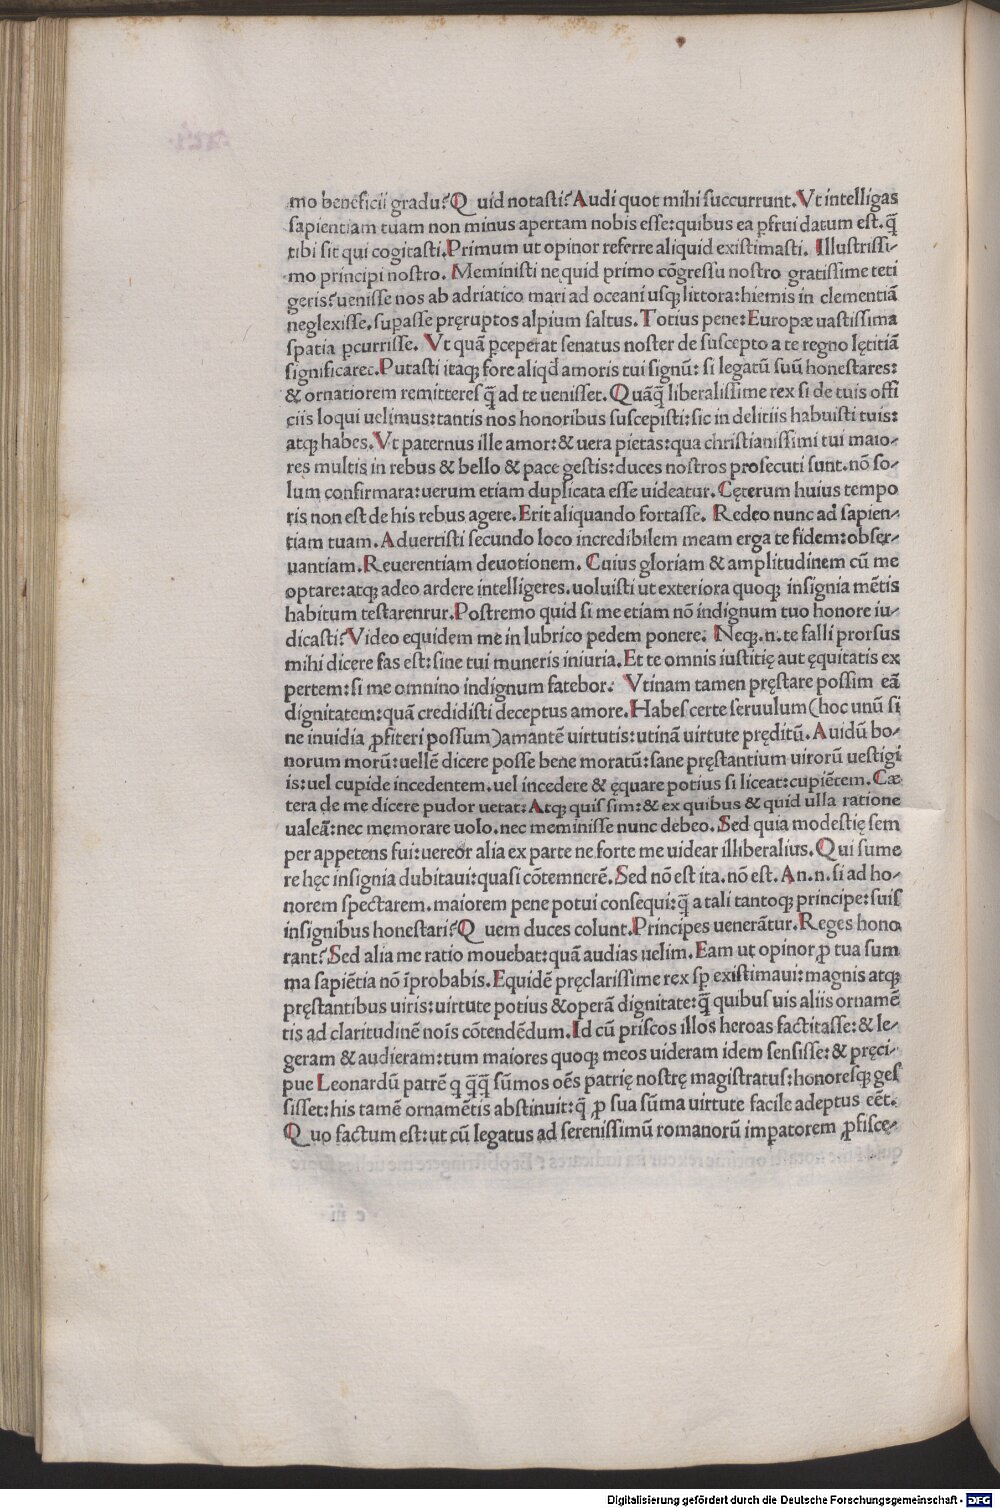 mo beneficii gradu? Q uid notasti? Audi quot mihi succurrunt. Vt intelligas
sapientiam tuam non minus apertam nobis esse: quibus ea ꝑfrui datum est. q̄
tibi sit qui cogitasti. Primum ut opinor referre aliquid existimasti. Illustrissi-
mo principi nostro. Meministi nequid primo cōgressu nostro gratissime teti
geris? uenisse nos ab adriatico mari ad oceani usqꝫ littora: hiemis in clementiā
neglexisse. supasse pręruptos alpium saltus. Totius pene: Europæ uastissima
spatia ꝑcurrisse. Vt quā ꝑceperat senatus noster de suscepto a te regno lętitiā
significaret. Putasti itaqꝫ fore aliqd̄ amoris tui signū: si legatū suū honestares:
& ornatiorem remitteres q̄ ad te uenisset. Quāq̄ liberalissime rex si de tuis offi
ciis loqui uelimus: tantis nos honoribus suscepisti: sic in delitiis habuisti tuis:
atqꝫ habes. Vt paternus ille amor: & uera pietas: qua christianissimi tui maio-
res multis in rebus & bello & pace gestis: duces nostros prosecuti sunt. nō so-
lum confirmata: uerum etiam duplicata esse uideatur. Cęterum huius tempo
ris non est de his rebus agere. Erit aliquando fortasse. Redeo nunc ad sapien-
tiam tuam. Aduertisti secundo loco incredibilem meam erga te fidem: obser-
uantiam. Reuerentiam deuotionem. Cuius gloriam & amplitudinem cū me
optare: atqꝫ adeo ardere intelligeres. uoluisti ut exteriora quoqꝫ insignia mētis
habitum testarentur. Postremo quid si me etiam nō indignum tuo honore iu-
dicasti? Video equidem me in lubrico pedem ponere. Neqꝫ .n. te falli prorsus
mihi dicere fas est: sine tui muneris iniuria. Et te omnis iustitię aut ęquitatis ex
pertem: si me omnino indignum fatebor. Vtinam tamen pręstare possim eā
dignitatem: quā credidisti deceptus amore. Habes certe seruulum (hoc unū si
ne inuidia ꝓfiteri possum) amantē uirtutis: utinā uirtute pręditū. Auidū bo-
norum morū: uellē dicere posse bene moratū: sane pręstantium uirorū uestigi
is: uel cupide incedentem. uel incedere & ęquare potius si liceat: cupiētem. Cæ
tera de me dicere pudor uetat: Atqꝫ quis sim: & ex quibus & quid ulla ratione
ualeā: nec memorare uolo. nec meminisse nunc debeo. Sed quia modestię sem
per appetens fui: uereor alia ex parte ne forte me uidear illiberalius. Qui sume
re hęc insignia dubitaui: quasi cōtemnerē. Sed nō est ita. nō est. An .n. si ad ho-
norem spectarem. maiorem pene potui consequi: q̄ a tali tantoqꝫ principe: suis
insignibus honestari? Q uem duces colunt. Principes uenerātur. Reges hono
rant? Sed alia me ratio mouebat: quā audias uelim. Eam ut opinor ꝓ tua sum
ma sapiētia nō īprobabis. Equidē pręclarissime rex sp̄ existimaui: magnis atqꝫ
pręstantibus uiris: uirtute potius & operā dignitate: q̄ quibus uis aliis ornamē
tis ad claritudinē nois cōtendēdum. Id cū priscos illos heroas factitasse: & le-
geram & audieram: tum maiores quoqꝫ meos uideram idem sensisse: & pręci-
pue Leonardū patrē q q̄q̄ sūmos oēs patrię nostrę magistratus: honoresqꝫ ges
sisset: his tamē ornamētis abstinuit: q̄ ꝓ sua sūma uirtute facile adeptus eēt.
Q uo factum est: ut cū legatus ad serenissimū romanorū impatorem ꝓfisce-
Digitalisierung gefördert durch die Deutsche Forschungsgemeinschaft - DFG